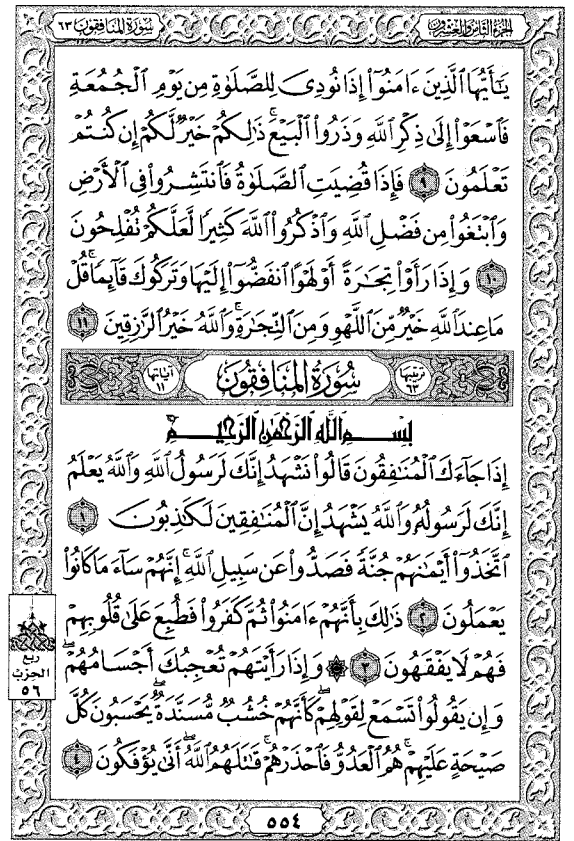 الجزء الثامن والعشرون سورة المنافقون ٦٣
يَـٰٓأَيُّهَا ٱلَّذِينَ ءَامَنُوٓا۟ إِذَا نُودِىَ لِلصَّلَوٰةِ مِن يَوْمِ ٱلْجُمُعَةِ
فَٱسْعَوْا۟ إِلَىٰ ذِكْرِ ٱللَّهِ وَذَرُوا۟ ٱلْبَيْعَ ۚ ذَٰلِكُمْ خَيْرٌ لَّكُمْ إِن كُنتُمْ
تَعْلَمُونَ ٩ فَإِذَا قُضِيَتِ ٱلصَّلَوٰةُ فَٱنتَشِرُوا۟ فِى ٱلْأَرْضِ
وَٱبْتَغُوا۟ مِن فَضْلِ ٱللَّهِ وَٱذْكُرُوا۟ ٱللَّهَ كَثِيرًا لَّعَلَّكُمْ تُفْلِحُونَ
١٠ وَإِذَا رَأَوْا۟ تِجَـٰرَةً أَوْ لَهْوًا ٱنفَضُّوٓا۟ إِلَيْهَا وَتَرَكُوكَ قَآئِمًا ۚ قُلْ
مَا عِندَ ٱللَّهِ خَيْرٌ مِّنَ ٱللَّهْوِ وَمِنَ ٱلتِّجَـٰرَةِ ۚ وَٱللَّهُ خَيْرُ ٱلرَّٰزِقِينَ ١١
ترتيبها ٦٣ سُورَةُ المُنَافِقُونَ آياتها ١١
بِسْمِ ٱللَّهِ ٱلرَّحْمَـٰنِ ٱلرَّحِيمِ
إِذَا جَآءَكَ ٱلْمُنَـٰفِقُونَ قَالُوا۟ نَشْهَدُ إِنَّكَ لَرَسُولُ ٱللَّهِ ۗ وَٱللَّهُ يَعْلَمُ
إِنَّكَ لَرَسُولُهُۥ وَٱللَّهُ يَشْهَدُ إِنَّ ٱلْمُنَـٰفِقِينَ لَكَـٰذِبُونَ ١
ٱتَّخَذُوٓا۟ أَيْمَـٰنَهُمْ جُنَّةً فَصَدُّوا۟ عَن سَبِيلِ ٱللَّهِ ۚ إِنَّهُمْ سَآءَ مَا كَانُوا۟
يَعْمَلُونَ ٢ ذَٰلِكَ بِأَنَّهُمْ ءَامَنُوا۟ ثُمَّ كَفَرُوا۟ فَطُبِعَ عَلَىٰ قُلُوبِهِمْ
فَهُمْ لَا يَفْقَهُونَ ٣ ۞ وَإِذَا رَأَيْتَهُمْ تُعْجِبُكَ أَجْسَامُهُمْ ۖ
وَإِن يَقُولُوا۟ تَسْمَعْ لِقَوْلِهِمْ ۖ كَأَنَّهُمْ خُشُبٌ مُّسَنَّدَةٌ ۖ يَحْسَبُونَ كُلَّ
صَيْحَةٍ عَلَيْهِمْ ۚ هُمُ ٱلْعَدُوُّ فَٱحْذَرْهُمْ ۚ قَـٰتَلَهُمُ ٱللَّهُ ۖ أَنَّىٰ يُؤْفَكُونَ ٤
ربع
الحزب
٥٦
٥٥٤